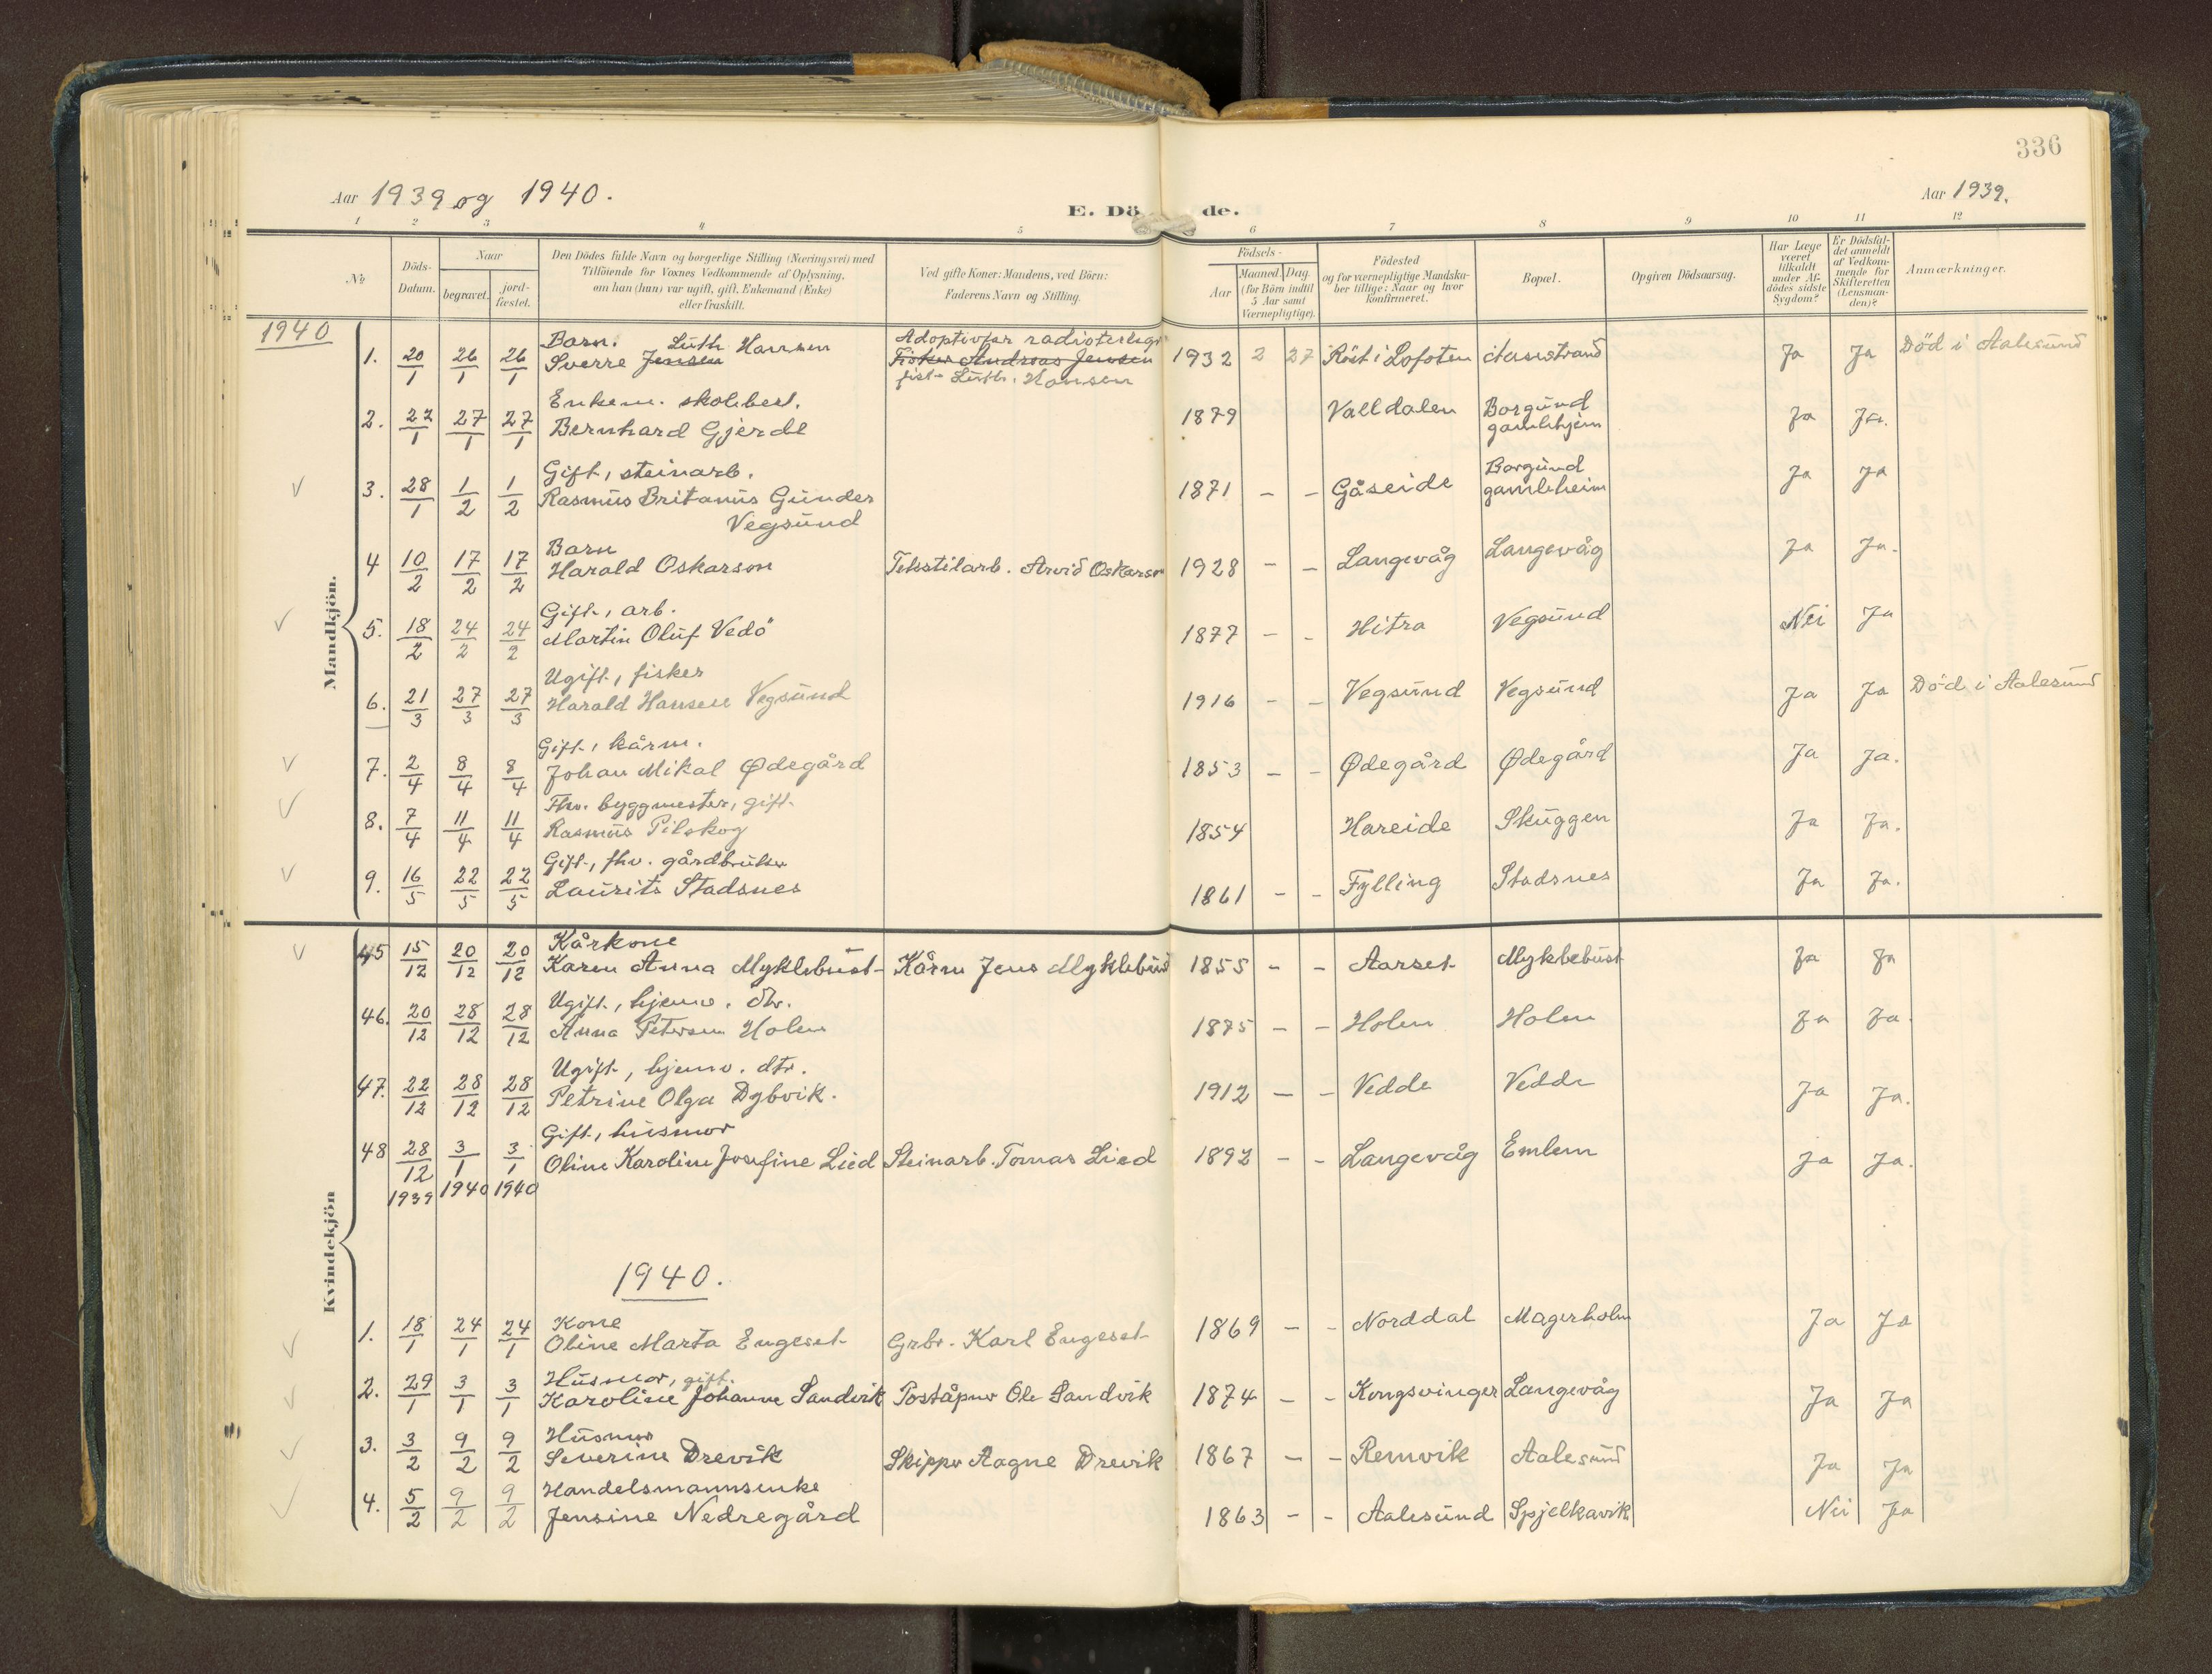 336
Aar 1939 og 1940.
E. Dö de.
Aar 1939.
1 2 3 4 5 6 7 8 9 10 11 12
No
Döds-
Datum.
Naar
begravet.
jord-
fæstet.
Den Dödes fulde Navn og borgerlige Stilling (Næringsvei) med
Tilföiende for Voxnes Vedkommende af Oplysning,
om han (hun) var ugift, gift, Enkemand (Enke)
eller fraskilt.
Ved gifte Koner: Mandens, ved Börn:
Faderens Navn og Stilling.
Födsels-
Aar
Maaned. Dag.
(for Börn indtil
5 Aar samt
Værnepligtige).
Födested
og for værnepligtige Mandska-
ber tillige: Naar og hvor
konfirmeret.
Bopæl.
Opgiven Dödsaarsag.
Har Læge
været
tilkaldt
under Af-
dödes sidste
Sygdom?
Er Dödsfal-
det anmeldt
af Vedkom-
mende for
Skifteretten
(Lensman-
den)?
Anmærkninger.
Mandkjön.
1940
Barn. Luth Hansen Adoptivfar radiotelegr
1. 20/1 26/1 26/1 Sverre Jensen Fisker Andreas Jensen 1932 2 27 Röst i Lofoten Ja Ja Död i Aalesund
fist- Luth. Hansen
Enkem. skolbest.
2. 22/1 27/1 27/1 Bernhard Gjerde 1879 Valldalen Borgund gamlehjem Ja Ja.
Gift, steinarb.
3. 28/1 1/2 1/2 Rasmus Britanus Gunder 1871 - - Gåseide Borgund gamleheim Ja Ja
Vegsund
Barn
4 10/2 17/2 17/2 Harald Oskarson Tekstilarb. Arvid Oskarson 1928 - - Langevåg Langevåg Ja Ja.
Gift, arb.
5. 18/2 24/2 24/2 Martin Oluf Vedö 1877 - - Hitra Vegsund Nei Ja
Ugift, fisker
6. 21/3 27/3 27/3 Harald Hansen Vegsund 1916 - - Vegsund Vegsund Ja Ja Död i Aalesund
Gift, kårm.
7. 2/4 8/4 8/4 Johan Mikal Ødegård 1853 - - Ødegård Ødegård Ja Ja.
Fhv. byggmester, gift.
8. 7/4 11/4 11/4 Rasmus Pilskog 1854 Hareide Skuggen Ja Ja.
Gift, fhv. gårdbruker
9. 16/5 22/5 22/5 Laurits Stadsnes 1861 - - Fylling Stadsnes Ja Ja.
Kvindekjön
Kårkone
45 15/12 20/12 20/12 Karen Anna Myklebust Kårm Jens Myklebust 1855 - - Aarset Myklebust Ja Ja
Ugift, hjemv. dtr.
46. 20/12 28/12 28/12 Anna Petersen Holen 1875 - - Holen Holen Ja Ja.
Ugift, hjemv. dtr.
47. 22/12 28/12 28/12 Petrine Olga Dybvik. 1912 - - Vedde Vedde Ja Ja.
Gift, husmor
48 28/12 3/1 3/1 Oline Karoline Josefine Lied Steinarb. Tomas Lied 1892 - - Langevåg Emlem Ja Ja.
1939 1940 1940
1940.
Kone
1. 18/1 24/1 24/1 Oline Marta Engeset Grbr. Karl Engeset 1869 - - Norddal Magerholm Ja Ja
Husmor, gift.
2. 29/1 3/1 3/1 Karoline Johanne Sandvik Poståpner Ole Sandvik 1874 - - Kongsvinger Langevåg Ja Ja
Husmor
3. 3/2 9/2 9/2 Severine Drevik Skipper Aagne Drevik 1867 - - Remvik Aalesund Ja Ja
Handelsmannsenke
4. 5/2 9/2 9/2 Jensine Nedregård 1863 - - Aalesund Spjelkavik Nei Ja